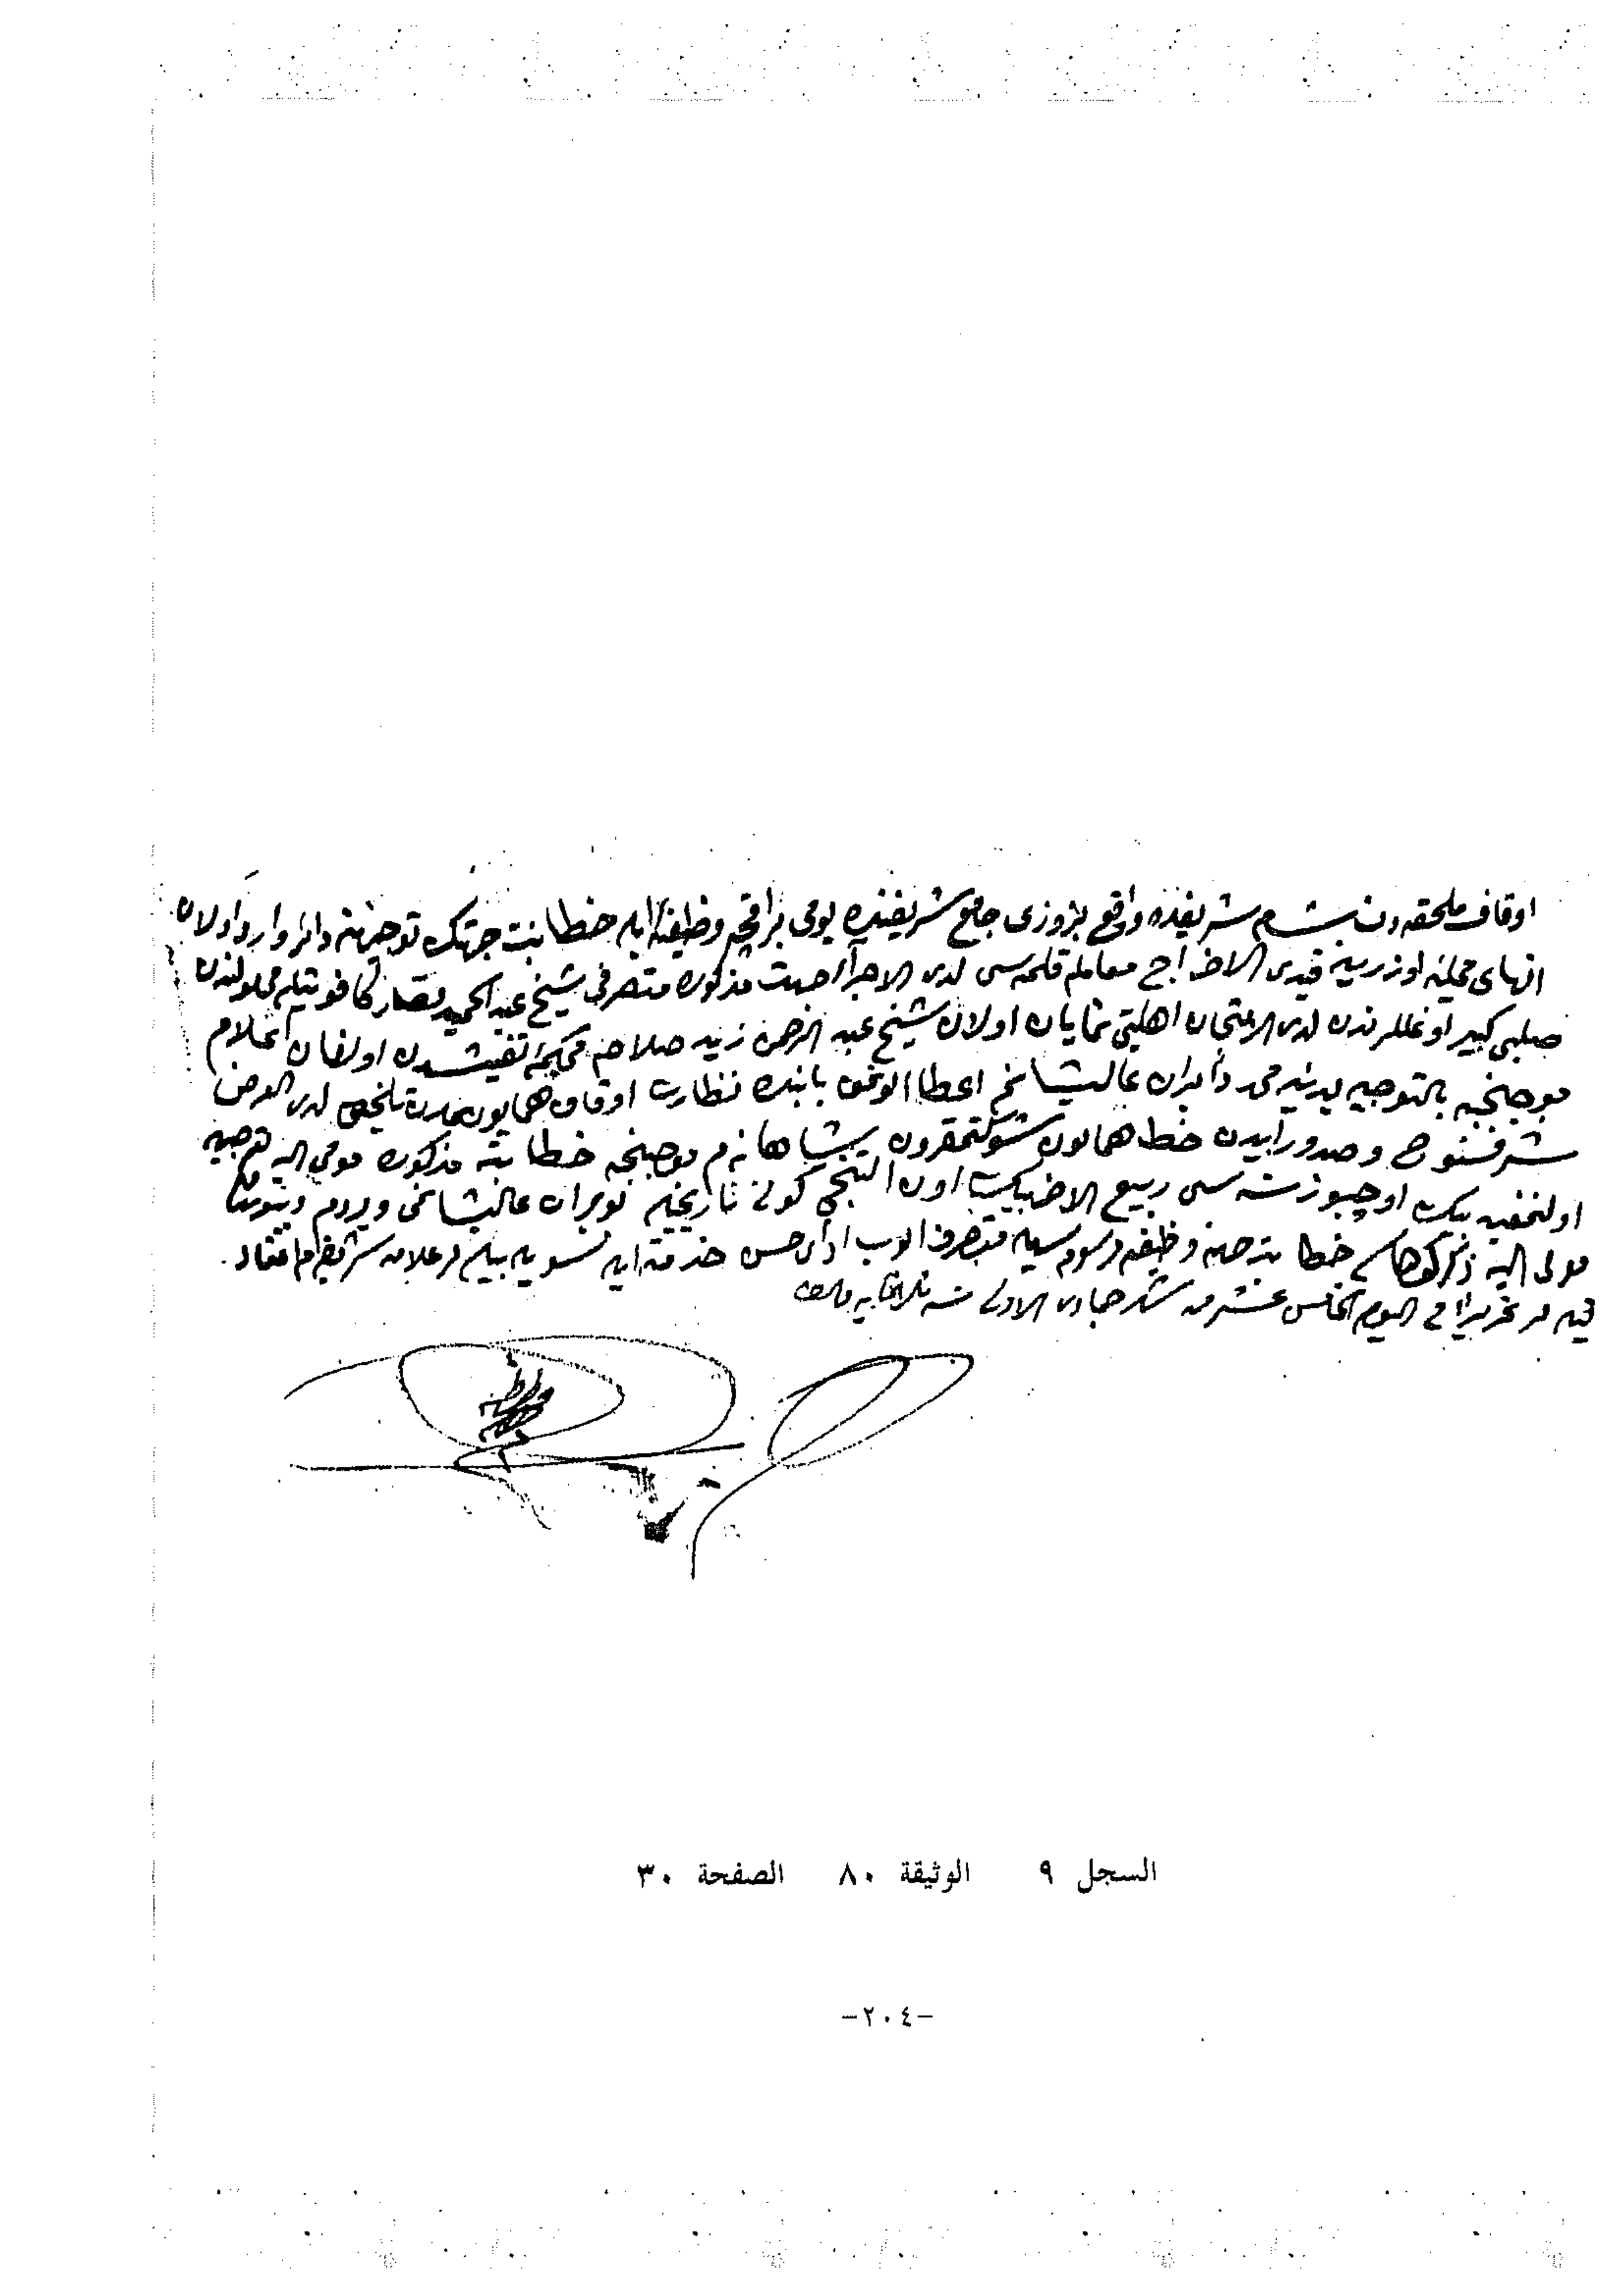 اوقاف ملحقه دن شام شريفده واقع بزوزى جامع شريفنده يومى بر اقچه وظيفه ايله خطابت جهتنك توجيهنه دائر وارد اولان
انهاى محليه اوزرينه قيدى الاخراج معامله قلميه سى لدى الاجرا جهت مذكوره متصرفى شيخ عبد الحميد قصار كا فوتيله محلولندن
صلبى كبير اوغللرندن لدى الامتحان اهليتى نمايان اولان شيخ عبد الرحمن زيد صلاحه محكمه تفتيشدن اولنان اعلام
موجبنجه بالتوجيه يدينه مجددا برات عاليشانم اعطا اولنمق بابنده نظارت اوقاف همايونمدن تلخيص لدى العرض
شرفسنوح و صدور ايدن خط همايون شوكتمقرون شاهانه م موجبنجه خطابت مذكوره مومى اليه توجيه
اولنمغين بيك اوچيوز سنه سى ربيع الاخرينك اون التنجى كونى تاريخيله بو برات عاليشانى ويردم و بيوردم كه
مولى اليه ذكر خطابت وظيفه مرسومه سيله متصرف اولوب اداى حسن خدمت ايليه شويله بيله لر علامت شريفه م اعتماد
قيله لر تحريرا في اليوم الخامس عشر من شهر جمادى الاولى سنه ثلاثمايه والف
السجل ٩ الوثيقة ٨٠ الصفحة ٣٠
-٢٠٤-